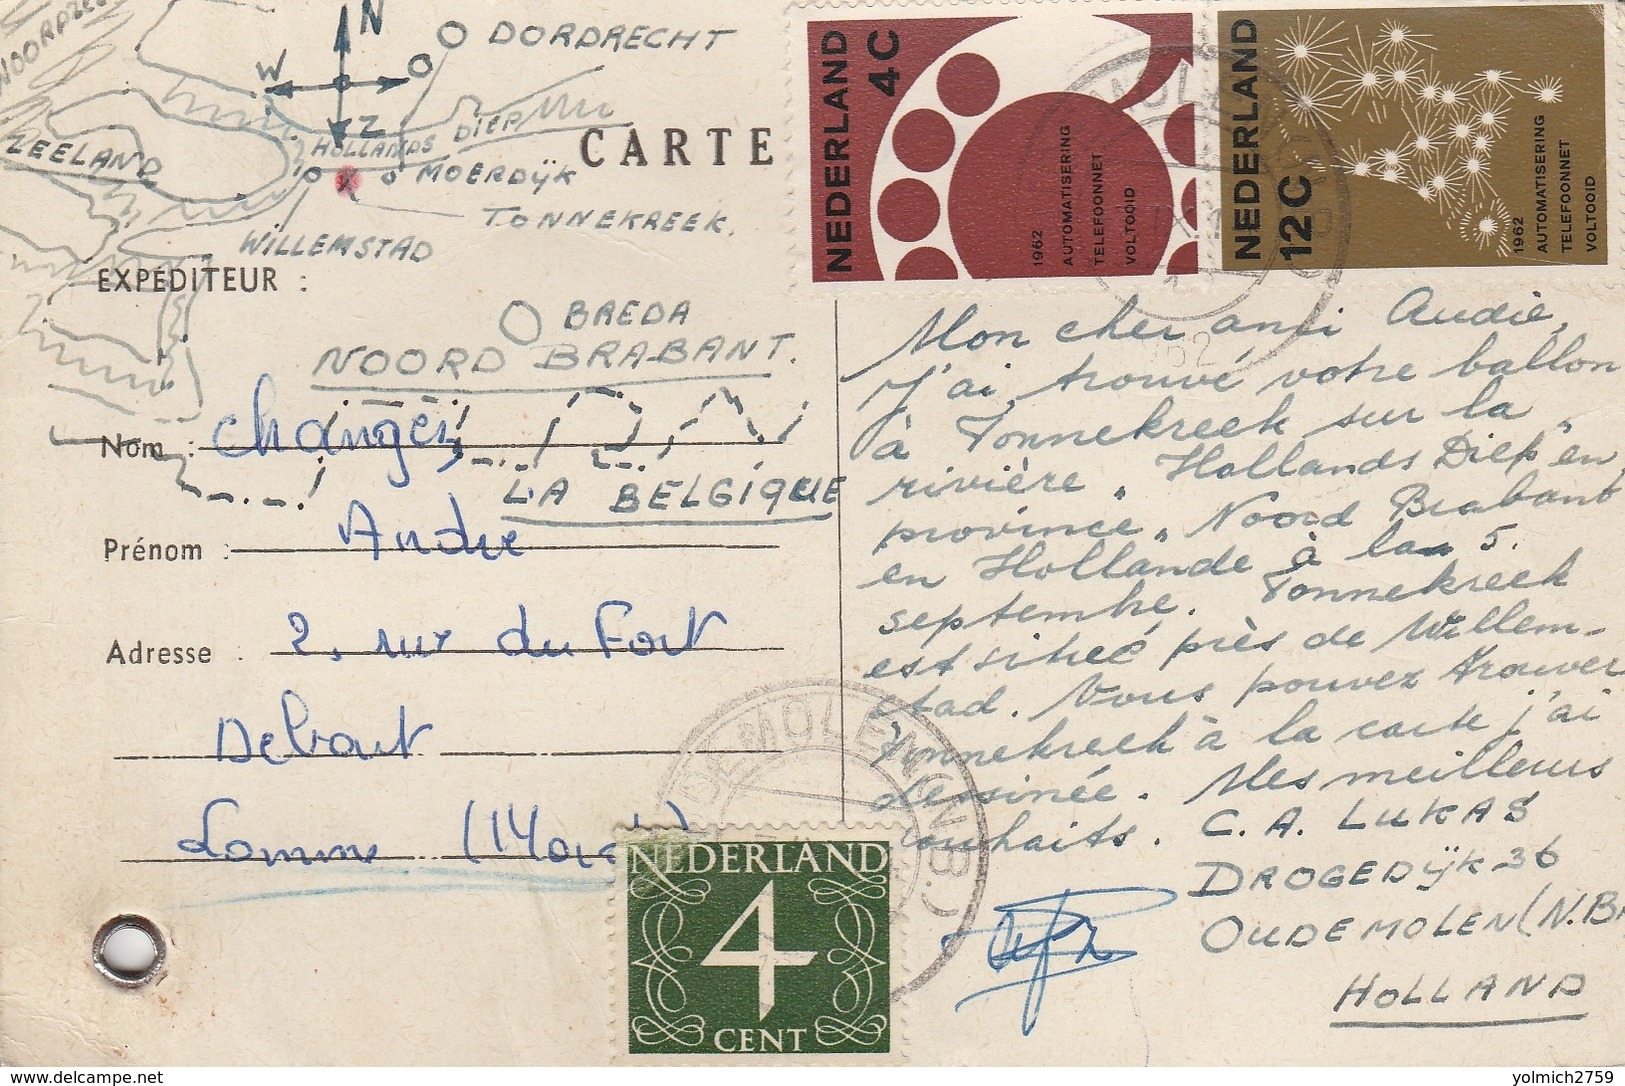 NOORDZEE
N
W
O
Z
DORDRECHT
ZEELAND
HOLLANDS DIEP
MOERDÿK
TONNEKREEK.
WILLEMSTAD
CARTE
BREDA
NOORD BRABANT.
LA BELGIQUE
EXPÉDITEUR :
Nom :
Prénom : Andre
Adresse : 2, rue du Fort
Lomme
NEDERLAND
4C
1962
AUTOMATISERING
TELEFOONNET
VOLTOOID
NEDERLAND
12C
1962
AUTOMATISERING
TELEFOONNET
VOLTOOID
Mon cher ami Audie,
J'ai trouvé votre ballon
à Tonnekreek sur la
rivière „Hollands Diep" en
province „Noord Brabant
en Hollande à la 5.
septembre. Tonnekreek
est située près de Willem-
stad. Vous pouvez trouver
Tonnekreek à la carte j'ai
dessinée. Mes meilleurs
souhaits. C. A. LUKAS
DROGEDÿK 36
OUDEMOLEN (N.BR
HOLLAND
OUDEMOLEN (N.B.)
NEDERLAND
4
CENT
www.delcampe.net
yolmich2759